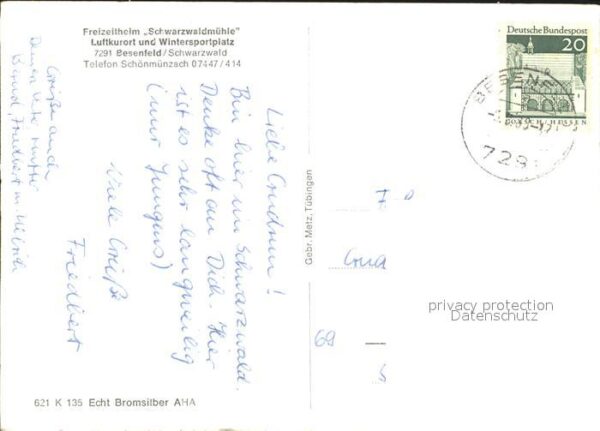 Freizeitheim „Schwarzwaldmühle"
Luftkurort und Wintersportplatz
7291 Besenfeld/Schwarzwald
Telefon Schönmünzach 07447/414
Liebe Gudrun!
Bin hier im Schwarzwald.
Denke oft an Dich. Hier
ist es sehr langweilig
(nur Jungens)
Viele Grüße
Friedbert
Grüße auch
Deine
Bernd, Friedbert
621 K 135 Echt Bromsilber AHA
Gebr. Metz, Tübingen
Deutsche Bundespost
20
LORSCH/HESSEN
BESENF
729
69
privacy protection
Datenschutz